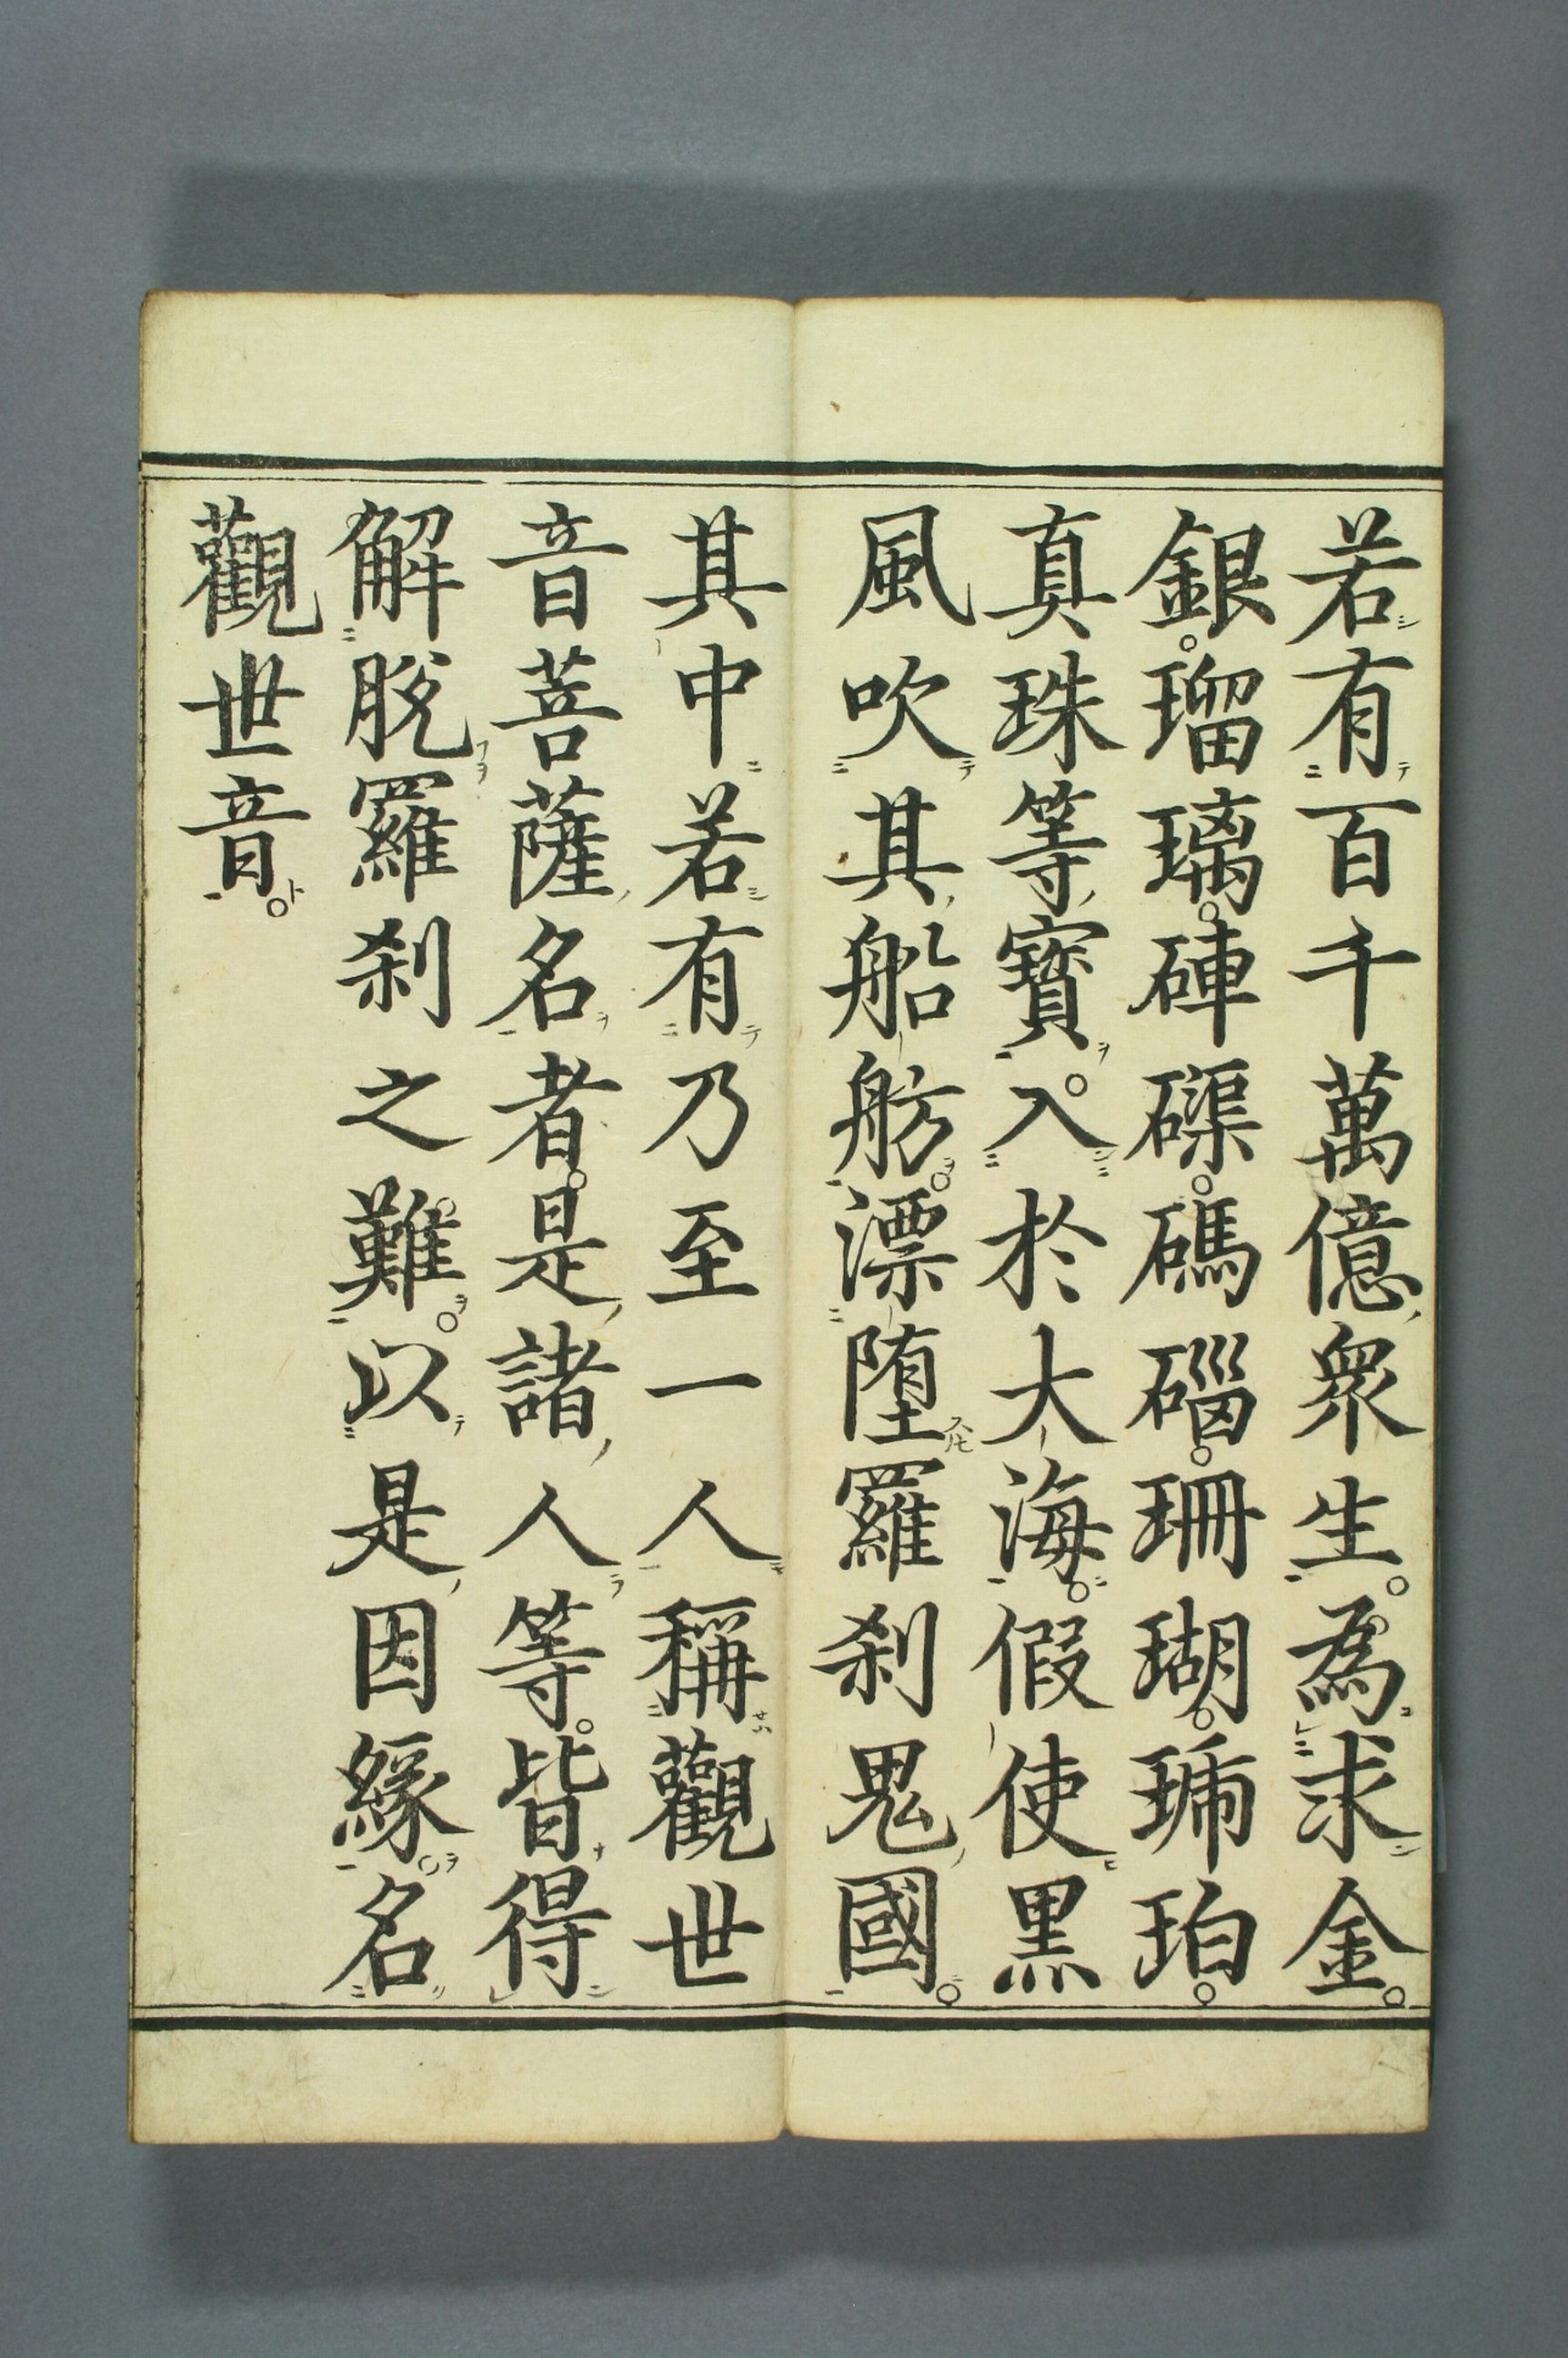 若有百千萬億衆生。為求金。
銀。瑠璃。硨磲。碼碯。珊瑚。琥珀。
真珠等寶。入於大海。假使黒
風吹其船舫。漂堕羅刹鬼國。
其中若有乃至一人稱觀世
音菩薩名者。是諸人等。皆得
解脱羅刹之難。以是因縁。名
觀世音。